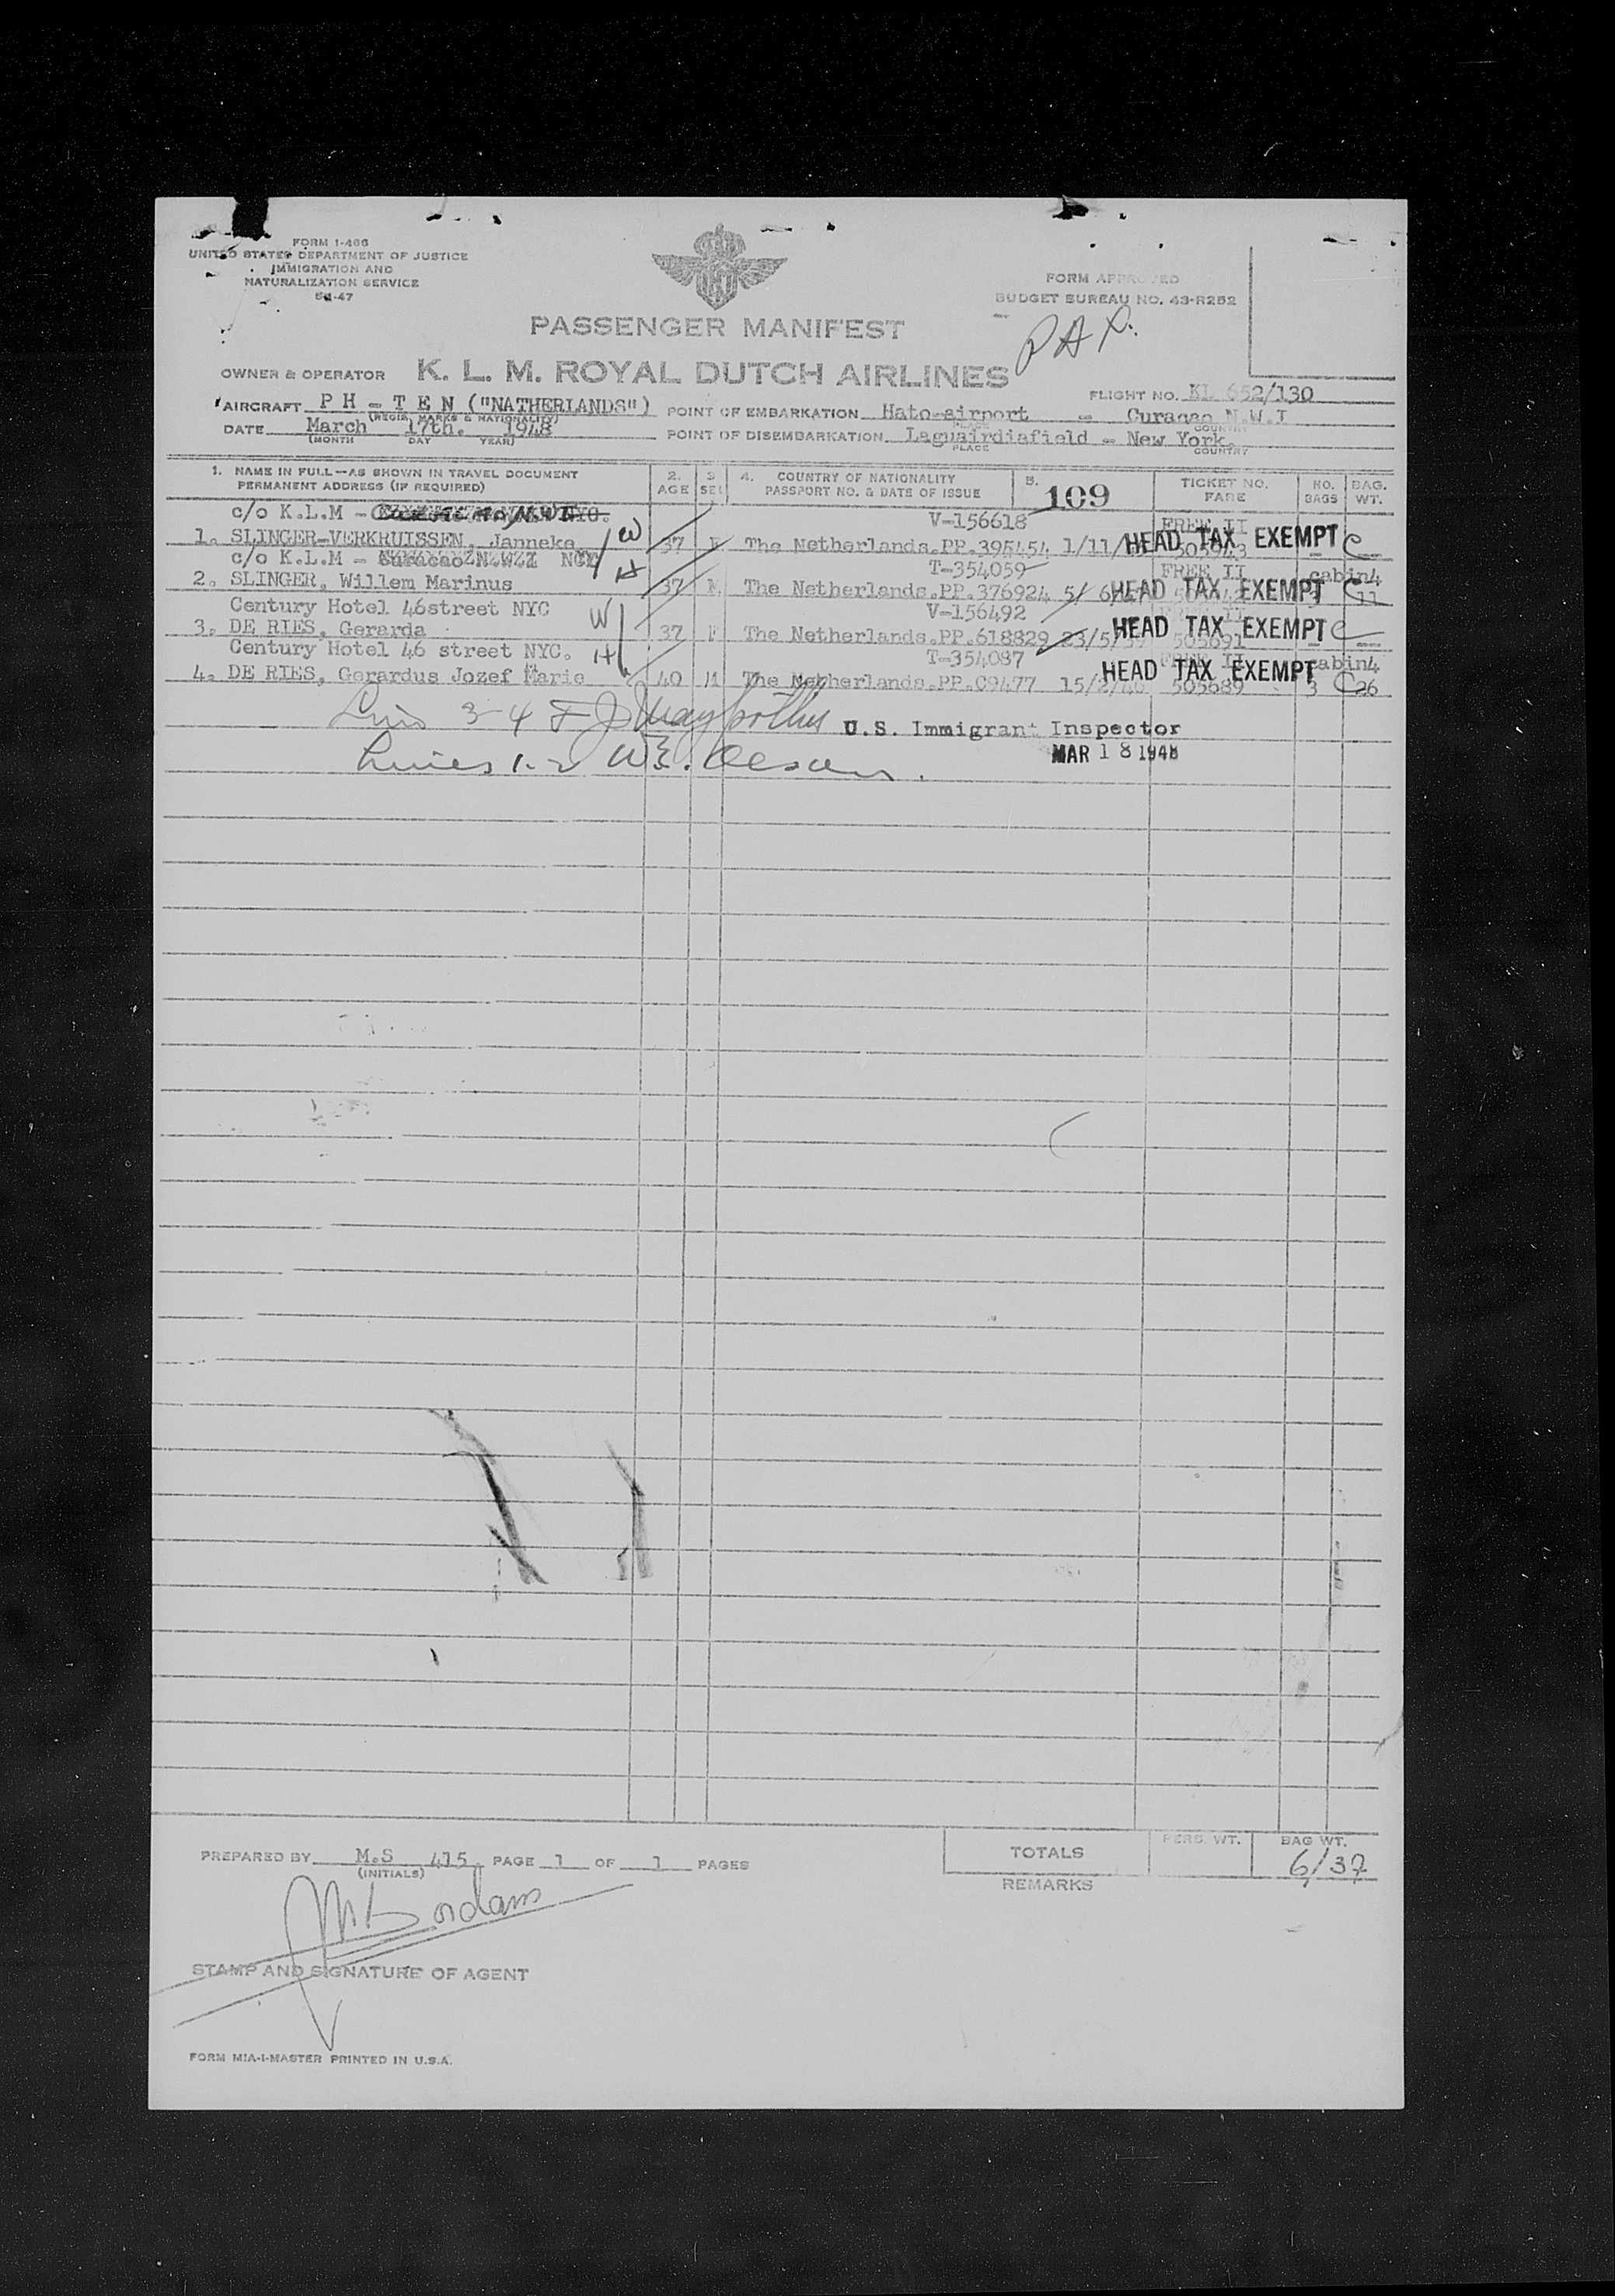 FORM I-466
UNITED STATES DEPARTMENT OF JUSTICE
IMMIGRATION AND
NATURALIZATION SERVICE
FORM APPROVED
BUDGET BUREAU NO. 43-R252
PAX.
PASSENGER MANIFEST
OWNER & OPERATOR K. L. M. ROYAL DUTCH AIRLINES
FLIGHT NO. KL 652/130
AIRCRAFT PH-TEN ("NATHERLANDS") POINT OF EMBARKATION Hato-airport - Curaçao N.W.I
(REGIS. MARKS & NATIONALITY) PLACE COUNTRY
DATE March 17th. 1948 POINT OF DISEMBARKATION Laguairdiafield - New York.
(MONTH DAY YEAR) PLACE COUNTRY
1. NAME IN FULL—AS SHOWN IN TRAVEL DOCUMENT 2. 3 4. COUNTRY OF NATIONALITY 5. 109 TICKET NO. NO. BAG.
PERMANENT ADDRESS (IF REQUIRED) AGE SEX PASSPORT NO. & DATE OF ISSUE FARE BAGS WT.
c/o K.L.M - V-156618 FREE II
1. SLINGER-VERKRUISSEN, Janneke W 37 F The Netherlands.PP.395454 1/11/ HEAD TAX EXEMPT C
c/o K.L.M - Curacao N.W.I T-354059 FREE II cabin4
2. SLINGER, Willem Marinus H 37 M The Netherlands.PP.376924 5/ 6/ HEAD TAX EXEMPT 3 C 11
Century Hotel 46street NYC W V-156492 II
3. DE RIES, Gerarda 37 F The Netherlands.PP.618829 23/5/39 HEAD TAX EXEMPT 505691 - C
Century Hotel 46 street NYC. H T-354087 FREE II cabin4
4. DE RIES, Gerardus Jozef Marie 40 M The Netherlands.PP.C9477 15/2/46 HEAD TAX EXEMPT 505689 3 C 26
3-4 U.S. Immigrant Inspector
Lines 1-2 MAR 18 1948
PREPARED BY M.S 415. PAGE 1 OF 1 PAGES
(INITIALS)
TOTALS PERS. WT. BAG WT.
6/37
REMARKS
STAMP AND SIGNATURE OF AGENT
FORM MIA-1-MASTER PRINTED IN U.S.A.